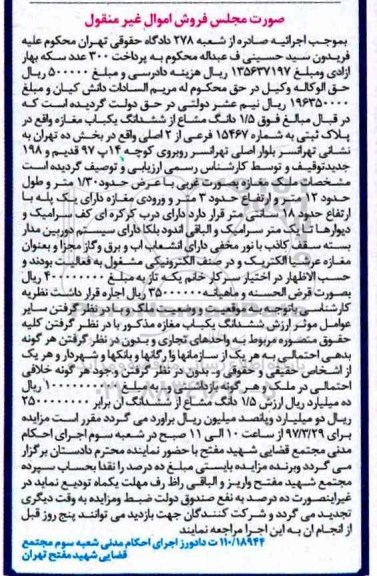 صورت مجلس فروش اموال غیر منقول
بموجب اجرائیه صادره از شعبه ۲۷۸ دادگاه حقوقی تهران محکوم علیه
فریدون سید حسینی ف عبداله محکوم به پرداخت ۳۰۰ عدد سکه بهار
ازادی ومبلغ ۱۳۵۶۳۷۱۹۷ ریال هزینه دادرسی و مبلغ ۵۰۰۰۰۰ ریال
حق الوکاله وکیل در حق محکوم له مریم السادات دانش کیان و مبلغ
۱۹۶۳۵۰۰۰۰ ریال نیم عشر دولتی در حق دولت گردیده است که
در قبال مبالغ فوق ۱/۵ دانگ مشاع از ششدانگ یکباب مغازه واقع در
پلاک ثبتی به شماره ۱۵۴۶۷ فرعی از ۲ اصلی واقع در بخش ده تهران به
نشانی تهرانسر بلوار اصلی تهرانسر روبروی کوچه ۱۴پ ۹۷ قدیم و ۱۹۸
جدیدتوقیف و توسط کارشناس رسمی ارزیابی و توصیف گردیده است
مشخصات ملک مغازه بصورت غربی با عرض حدود۱/۳۰ متر و طول
حدود ۱۲ متر و ارتفاع حدود ۳ متر و ورودی مغازه دارای یک پله با
ارتفاع حدود ۱۸ سانتی متر قرار دارد دارای درب کرکره ای کف سرامیک و
دیوارها تا یک متر سرامیک و الباقی اندود بلکا دارای سیستم دوربین مدار
بسته سقف کاذب با نور مخفی دارای انشعاب اب و برق وگاز مجزا و بعنوان
مغازه عرشیا الکتریک و در صنف الکترونیکی مشغول به فعالیت بودند و
حسب الاظهار در اختیار سرکار خانم یکه تاز به مبلغ ۴۰۰۰۰۰۰۰۰ ریال
بصورت قرض الحسنه و ماهیانه ۳۵۰۰۰۰۰۰ ریال اجاره قرار داشت نظریه
کارشناسی باتوجه به موقعیت و وضعیت ملک و با در نظر گرفتن سایر
عوامل موثر ارزش ششدانگ یکباب مغازه مذکور با در نظر گرفتن کلیه
حقوق متصوره مربوط به واحدهای تجاری و بدون در نظر گرفتن هر گونه
بدهی احتمالی به هر یک از سازمانها وارگانها و بانکها و شهردار و هر یک
از اشخاص حقیقی و حقوقی و بدون در نظر گرفتن وجود هر گونه خلافی
احتمالی در ملک و هر گونه بازداشتی و به مبلغ ۱۰۰۰۰۰۰۰۰۰۰ ریال
ده میلیارد ریال ارزش ۱/۵ دانگ مشاع از ششدانگ ان برابر ۲۵۰۰۰۰۰۰۰۰
ریال دو میلیارد وپانصد میلیون ریال براورد می گردد مقرر است مزایده
برای ۹۷/۳/۲۹ از ساعت ۱۰ الی ۱۱ صبح در شعبه سوم اجرای احکام
مدنی مجتمع قضایی شهید مفتح با حضور نماینده محترم دادستان برگزار
می گردد وبرنده مزایده بایستی مبلغ ده درصد را نقدا بحساب سپرده
مجتمع شهید مفتح واریز و الباقی راظ رف مهلت یکماه تودیع نماید در
غیراینصورت ده درصد به نفع صندوق دولت ضبط ومزایده به وقت دیگری
تجدید می گردد و شرکت کنندگان جهت بازدید می توانند پنج روز قبل
از انجام ان به این اجرا مراجعه نمایند
۱۱۰/۱۸۹۴۴ ت دادورز اجرای احکام مدنی شعبه سوم مجتمع
قضایی شهید مفتح تهران